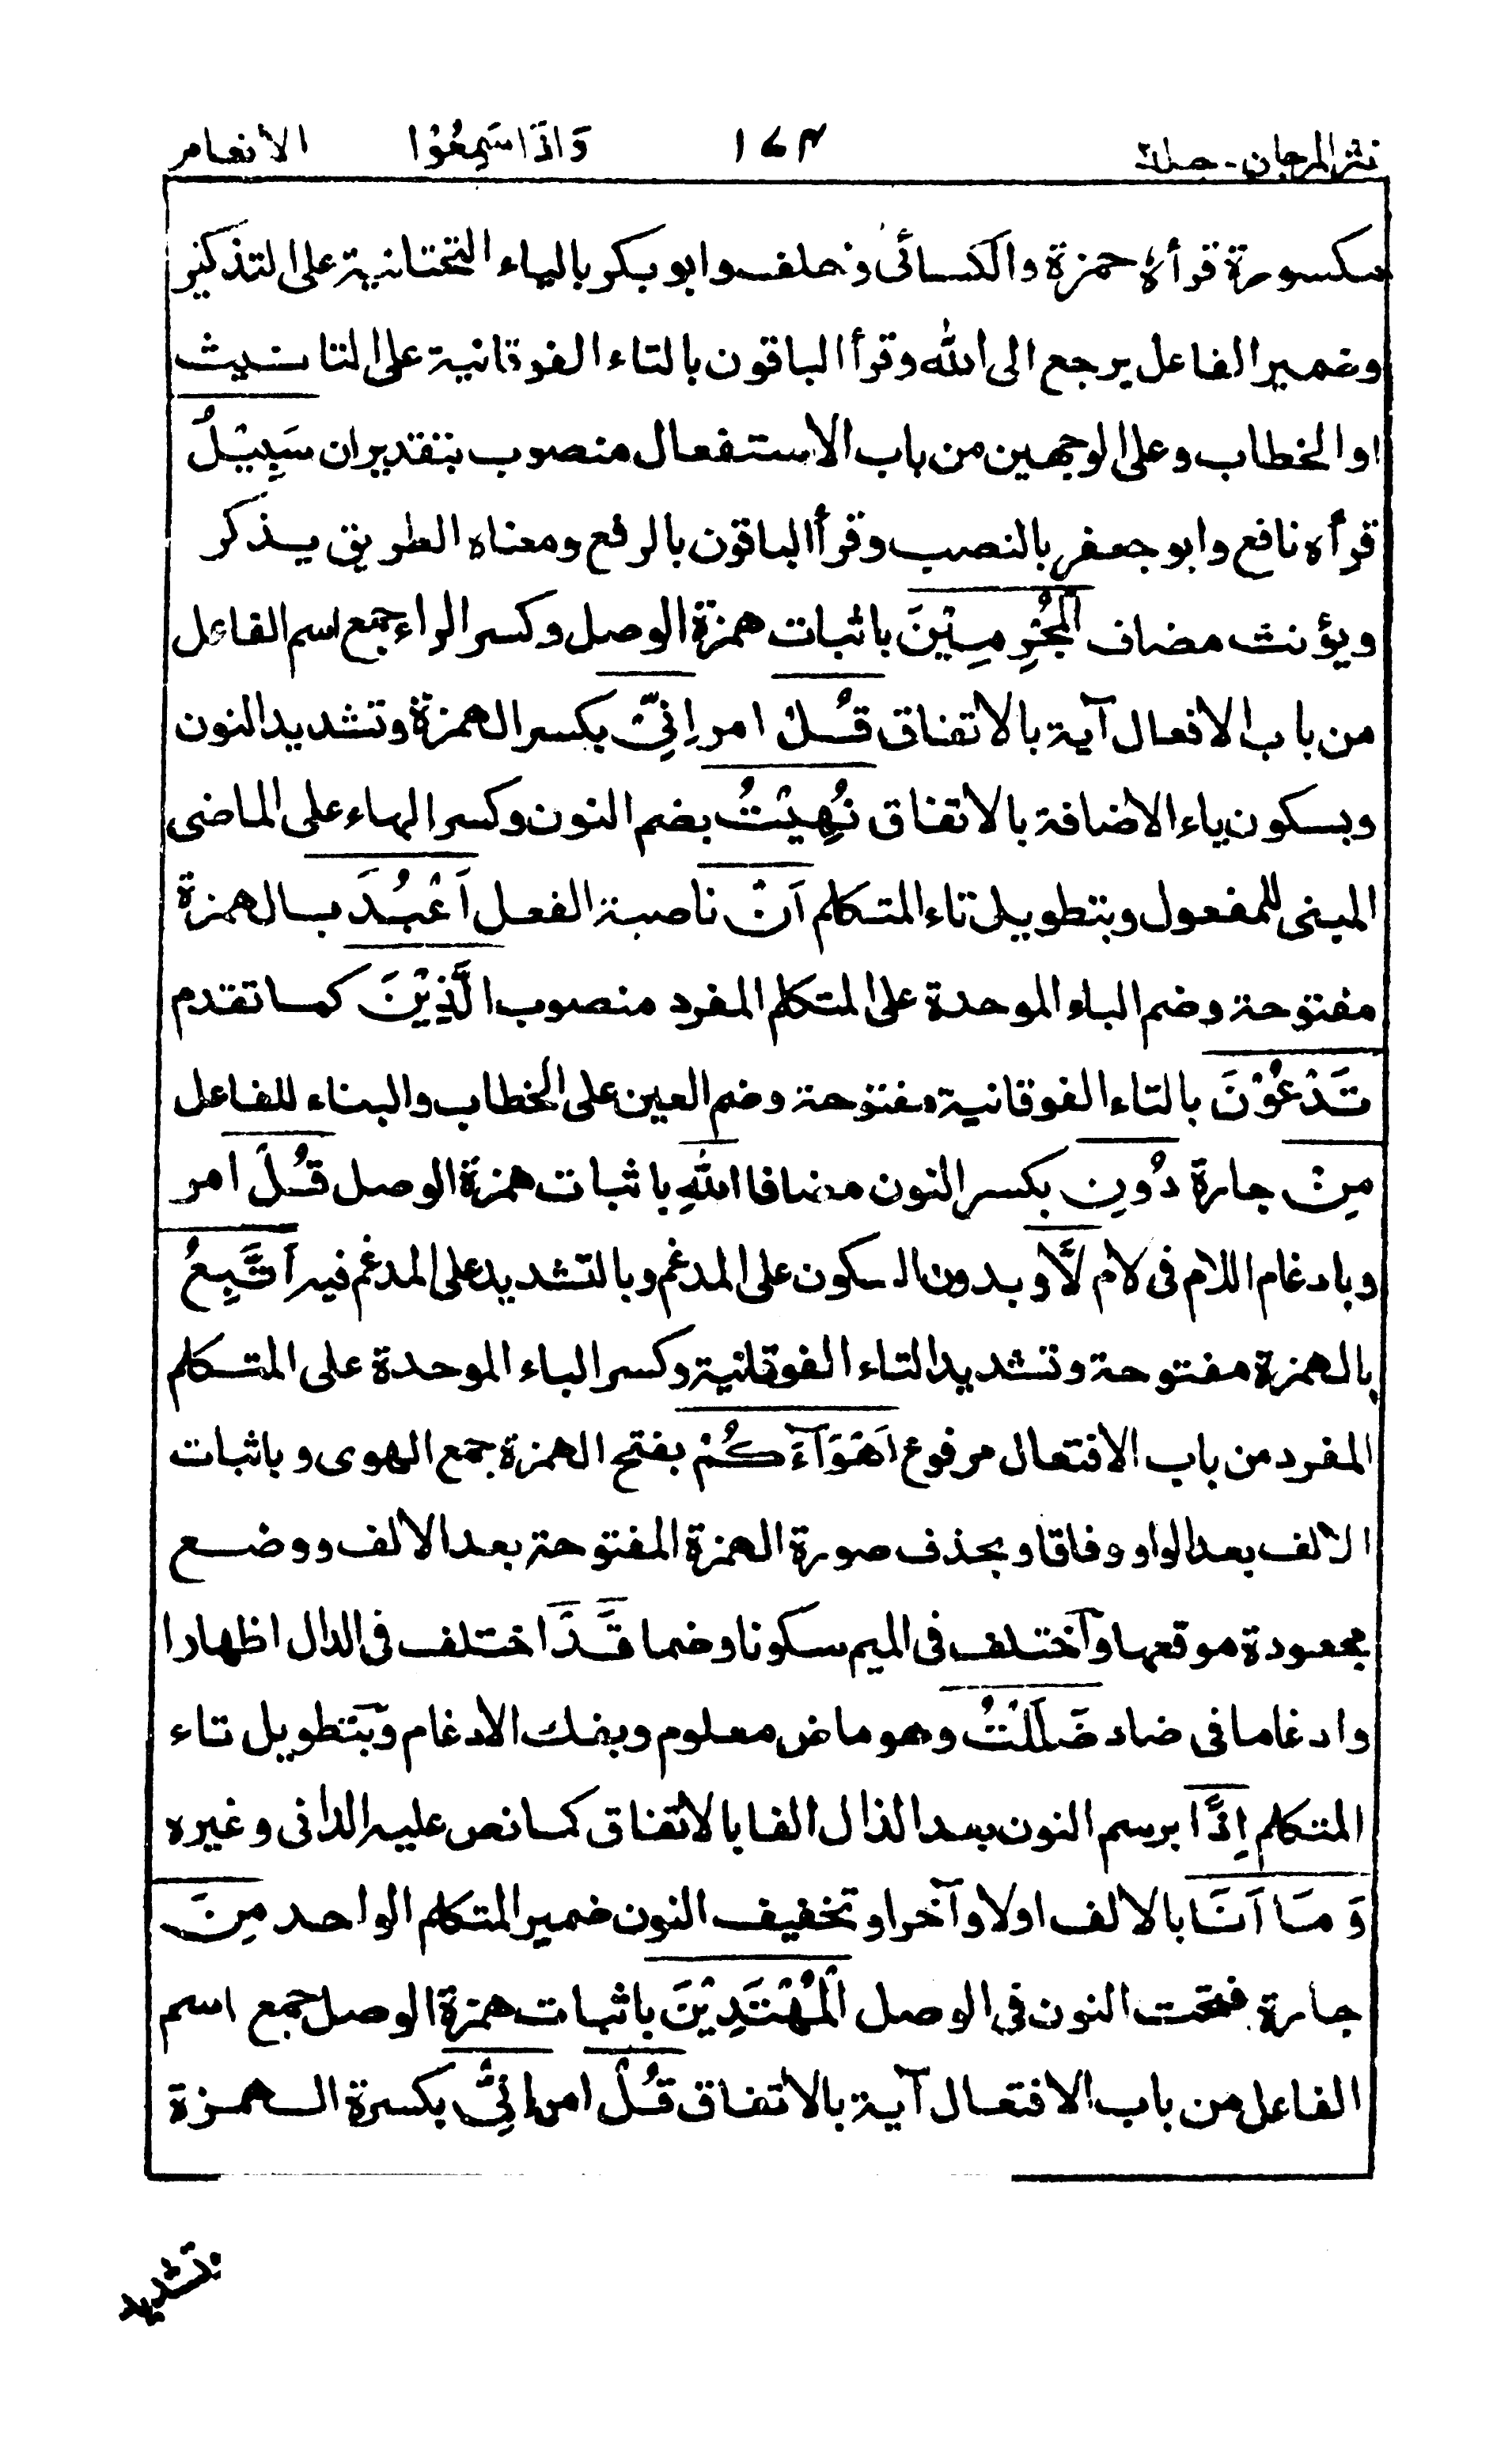 نثر المرجان - جلد٢ ١٧٣ وَاِذَا سَمِعُوْا الانعام
مكسورة قرأه حمزة والكسائى وخلف وابو بكر بالياء التحتانية على التذكير
وضمير الفاعل يرجع الى الله وقرأ الباقون بالتاء الفوقانية على التانيث
او الخطاب وعلى الوجهين من باب الاستفعال منصوب بتقدير ان سَبِيْلُ
قرأه نافع وابو جعفر بالنصب وقرأ الباقون بالرفع ومعناه الطريق يذكر
ويؤنث مضاف الْمُجْرِمِيْنَ باثبات همزة الوصل وكسر الراء جمع اسم الفاعل
من باب الافعال آية بالاتفاق قُلْ امر اِنِّىْ بكسر الهمزة وتشديد النون
وبسكون ياء الاضافة بالاتفاق نُهِيْتُ بضم النون وكسر الهاء على الماضى
المبنى للمفعول وبتطويل تاء المتكلم اَنْ ناصبة الفعل اَعْبُدَ بالهمزة
مفتوحة وضم الباء الموحدة على المتكلم المفرد منصوب الَّذِيْنَ كما تقدم
تَدْعُوْنَ بالتاء الفوقانية مفتوحة وضم العين على الخطاب والبناء للفاعل
مِنْ جارة دُوْنِ بكسر النون مضافا اللهِ باثبات همزة الوصل قُلْ امر
وبادغام اللام فى لام لَّا وبدون السكون على المدغم وبالتشديد على المدغم فيه اَتَّبِعُ
بالهمزة مفتوحة وتشديد التاء الفوقانية وكسر الباء الموحدة على المتكلم
المفرد من باب الافتعال مرفوع اَهْوَآءَكُمْ بفتح الهمزة جمع الهوى و باثبات
الالف بعد الواو وفاقا وبحذف صورة الهمزة المفتوحة بعد الالف ووضع
مجعودة موقعها واختلف فى الميم سكونا وضما قَدْ اختلف فى الدال اظهارا
وادغاما فى ضاد ضَلَلْتُ وهو ماض معلوم وبفك الادغام وبتطويل تاء
المتكلم اِذًا برسم النون بعد الذال الفا بالاتفاق كما نص عليه الدانى وغيره
وَمَا اَنَا بالالف اولا وآخرا وتخفيف النون ضمير المتكلم الواحد مِنَ
جارة فتحت النون فى الوصل الْمُهْتَدِيْنَ باثبات همزة الوصل جمع اسم
الفاعل من باب الافتعال آية بالاتفاق قُلْ امر اِنِّىْ بكسرة الهمزة
بتشديد